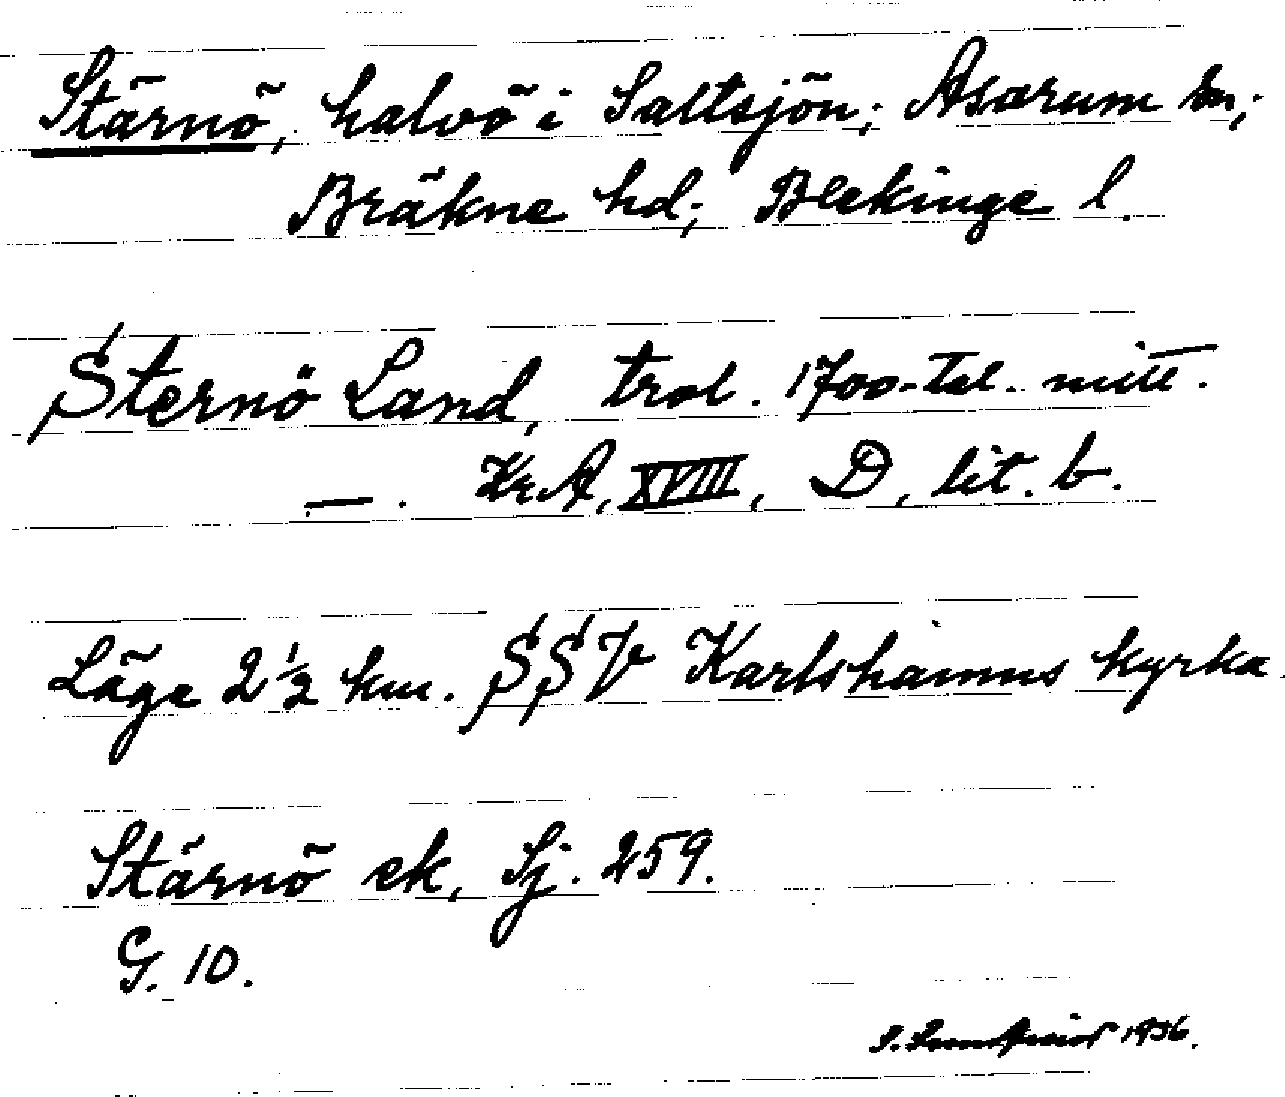 Stärnö, halvö i Saltsjön; Asarum sn;
Bräkne hd; Blekinge l.
Sternö Land, trol. 1700-tal. mitt.
—. Kr.A, XVIII, D, lit. b.
Läge 2 1/2 km. SSV Karlshamns kyrka.
Stärnö ek, Sj. 259.
G. 10.
1936.